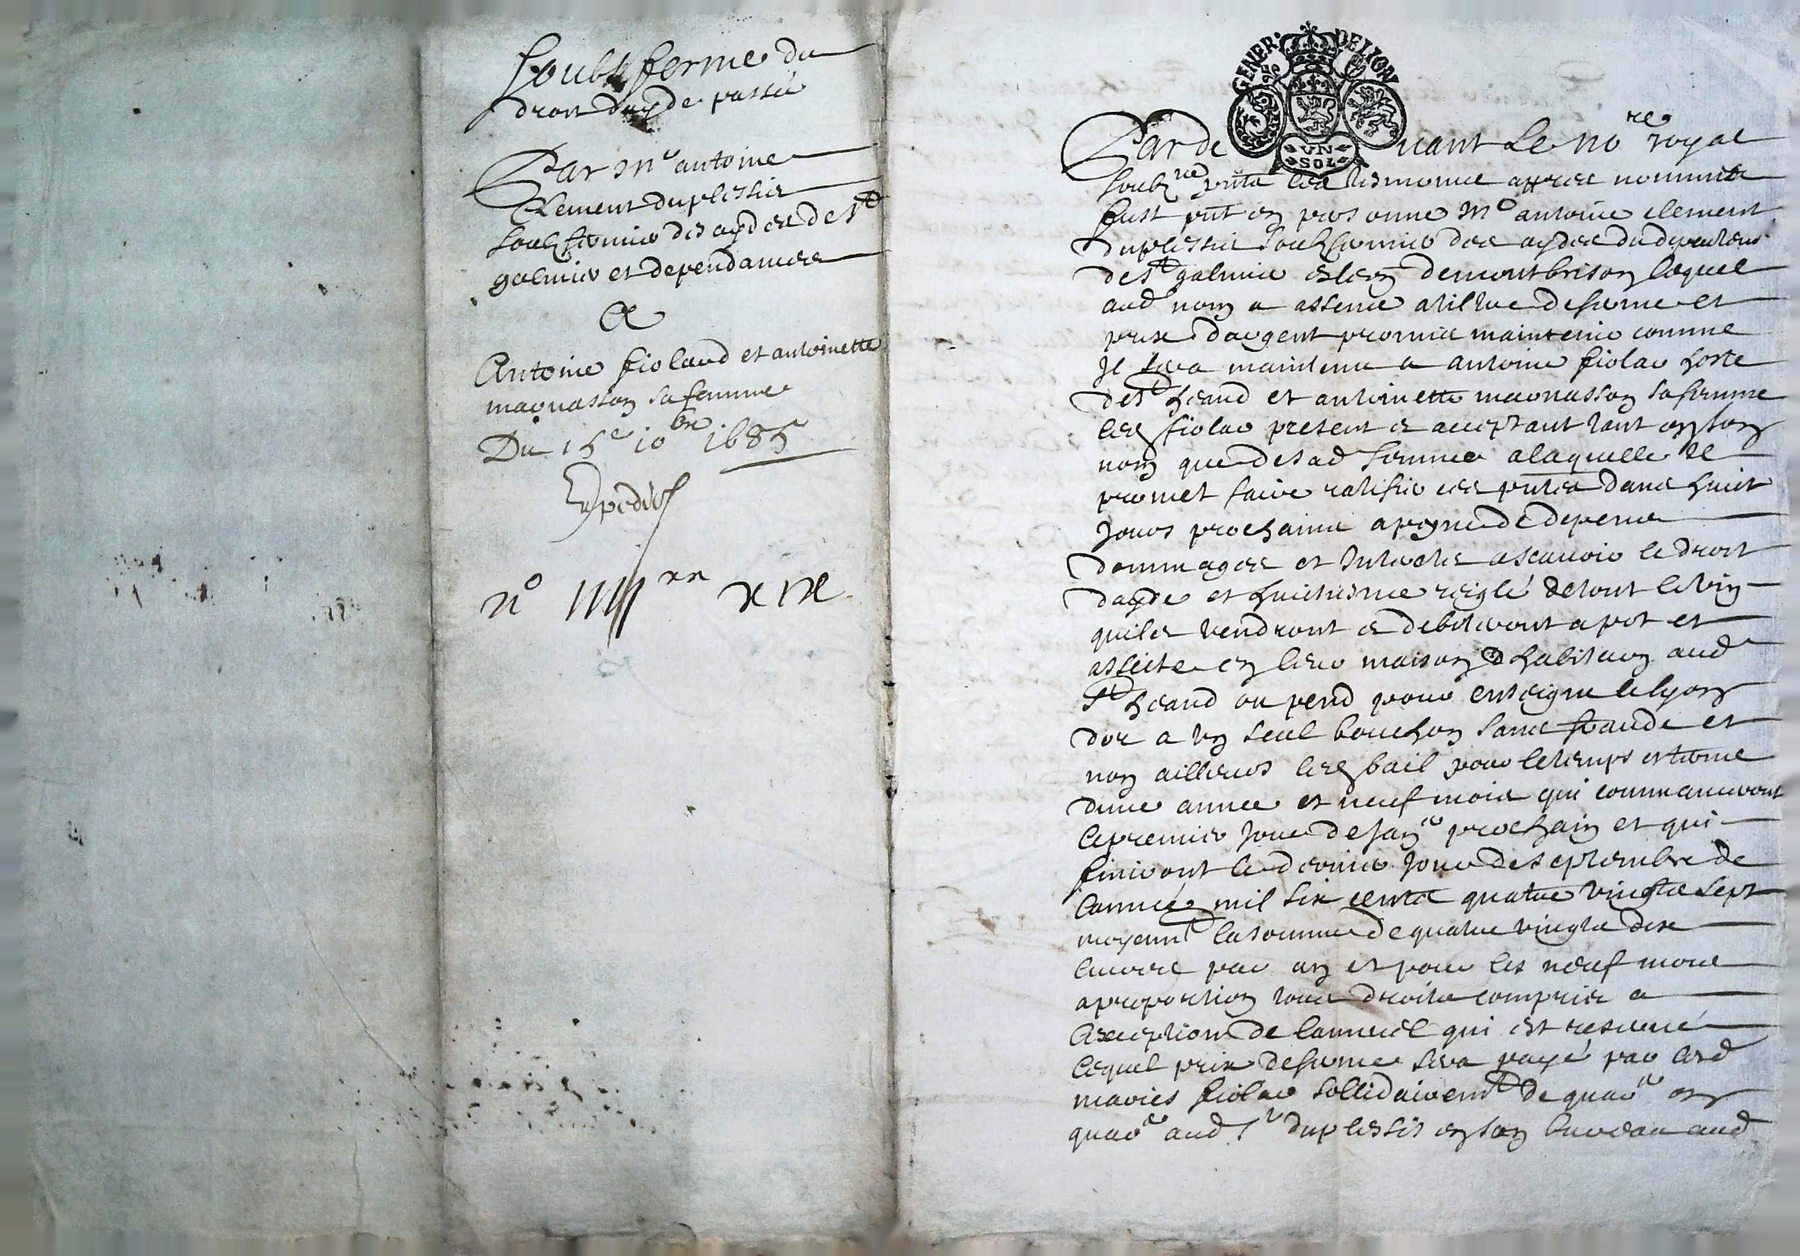 Soubzferme du
droit dayde passée
Par Me antoine
Clement duplessis
soubzfermier des aydes de St
galmier et dependances
A
Antoine fiolard et antoinette
magnasson sa femme
Du 15e 10bre 1685
Expediés
no IIIIxx XIX
GENER. DE LION
UN SOL
Pardevant Le nore royal
soubzne pnts les tesmoings appres nommes
fust pnt en personne Me antoine clement
duplessis soubzfermier des aydes du despartemt
de St galmier eslen de montbrison lequel
aud nom a assence a tiltre de ferme et
prix dargent promis maintenir comme
Il sera maintenu a antoine fiolar hoste
de St heand et antoinette magnasson sa femme
led fiolar present et acceptant tant en son
nom que de sad femme a laquelle Il
promet faire ratiffier ces pntes dans huict
Jours prochains a peyne de depens
dommages et Interests ascavoir le droit
dayde et huictiesme reiglé de tout le vin
quils vendront et debiteront a pot et
assiete en leur maison dhabitaon aud
St heand ou pend pour enseigne le lyon
dor a un seul bouchon sans fraude et
non ailleurs led bail pour le temps et terme
dune annee et neuf mois qui commanceront
le premier Jour de Janer prochain et qui
finiront le dernier Jour de septembre de
lannée mil six cents quatre vingts sept
moyent la somme de quatre vingts dix
livres par an et pour les neuf mois
a proportion tous droits compris a
lexception de lannuel qui est reservé
lequel prix de ferme sera payé par lesd
mariés fiolar sollidairemt de quarer en
quarer aud Sr duplessis en son bureau aud